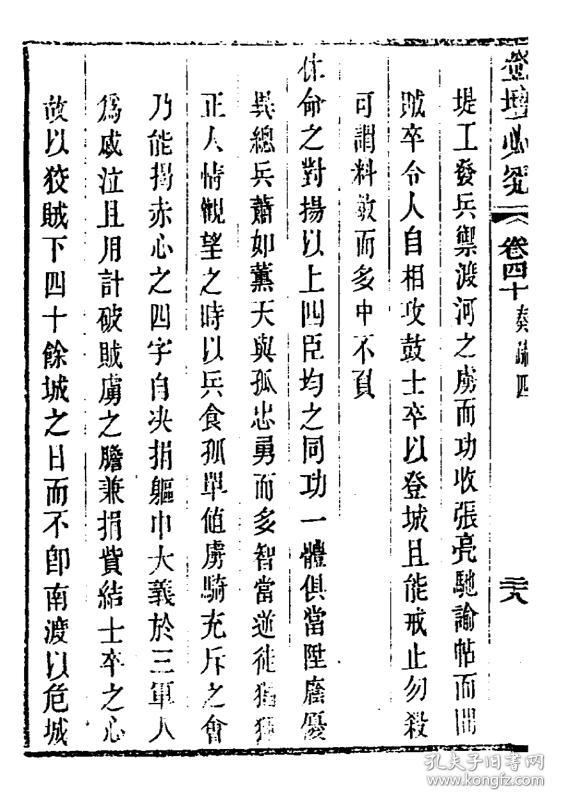 登壇必究
卷四十 奏疏四
三十八
堤工發兵禦渡河之虜而功收張亮馳諭帖而間
賊卒令人自相攻鼓士卒以登城且能戒止勿殺
可謂料敵而多中不負
休命之對揚以上四臣均之同功一體俱當陞廕優
異總兵蕭如薰天與孤忠勇而多智當逆徒猖獗
正人情觀望之時以兵食孤單値虜騎充斥之會
乃能揭赤心之四字自决捐軀巾大義於三軍人
爲感泣且用計破賊虜之膽兼捐貲結士卒之心
故以狡賊下四十餘城之日而不卽南渡以危城
孔夫子旧书网
www.kongfz.com